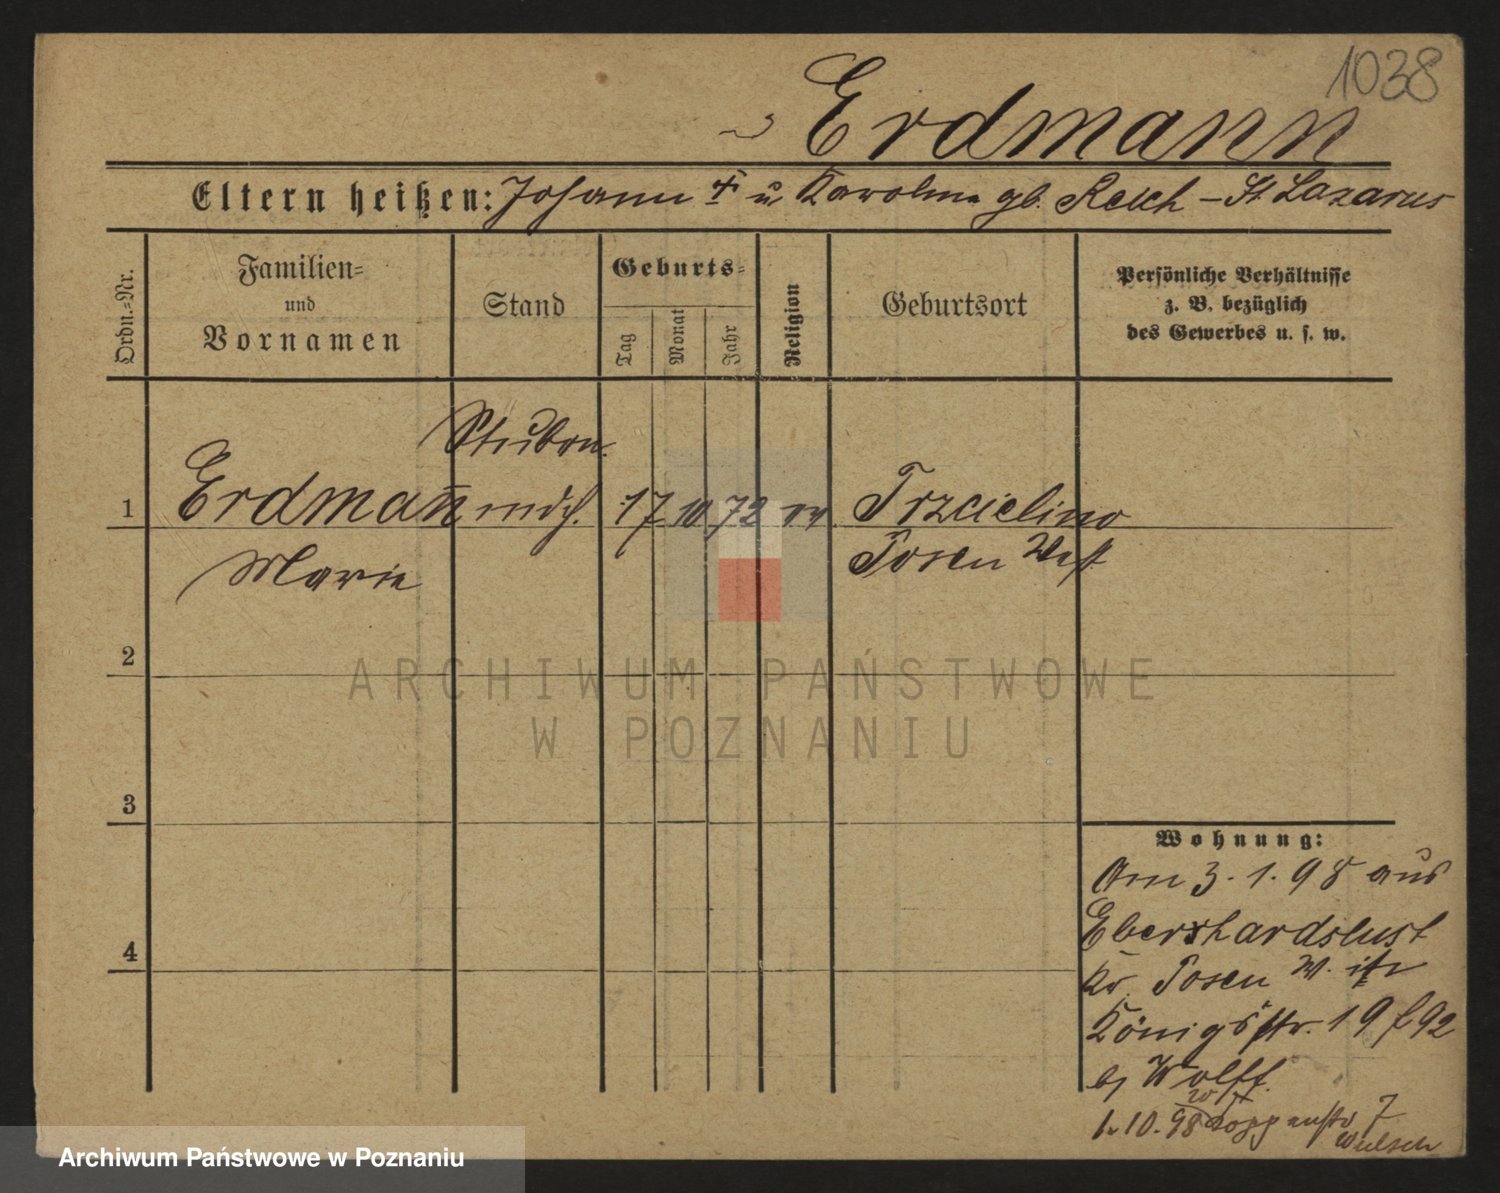 1038
Erdmann
Eltern heißen: Johann † u Karoline gb. Reich – St. Lazarus
Ordn.-Nr.
Familien-
und
Vornamen
Stand
Geburts-
Tag
Monat
Jahr
Religion
Geburtsort
Persönliche Verhältnisse
z. B. bezüglich
des Gewerbes u. s. w.
Stuben
1 Erdmann mdch. 17 10 72 ev Trzcielino
Marie Posen West
2
3
4
ARCHIWUM PAŃSTWOWE
W POZNANIU
Wohnung:
Am 3. 1. 98 aus
Eberhardslust
Kr. Posen W.
Königsstr. 19
b/ Wolff.
1. 10. 98 7
Archiwum Państwowe w Poznaniu